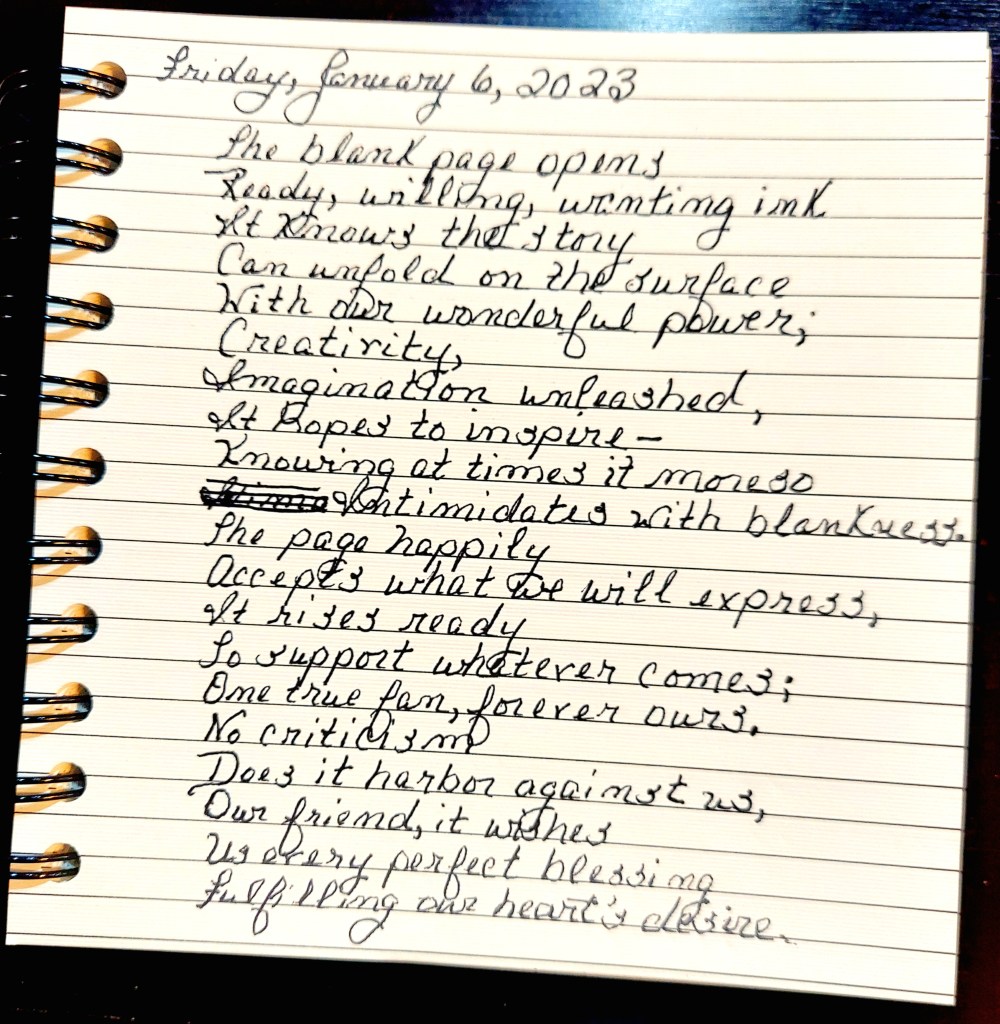 Friday, January 6, 2023
The blank page opens
Ready, willing, wanting ink
It knows the story
Can unfold on the surface
With our wonderful power;
Creativity,
Imagination unleashed,
It hopes to inspire—
Knowing at times it more so
Intimidates with blankness.
The page happily
Accepts what we will express,
It rises ready
To support whatever comes;
One true fan, forever ours.
No criticism
Does it harbor against us,
Our friend, it wishes
Us every perfect blessing
Fulfilling our heart's desire.